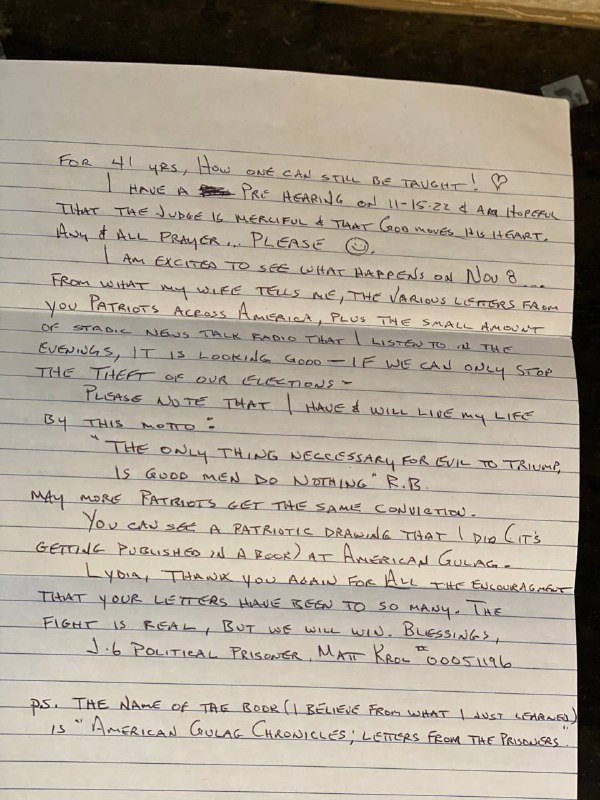 FOR 41 YRS, HOW ONE CAN STILL BE TAUGHT! ♡
I HAVE A PRE HEARING ON 11-15-22 & AM HOPEFUL
THAT THE JUDGE IS MERCIFUL & THAT GOD MOVES HIS HEART.
ANY & ALL PRAYER... PLEASE ☺.
I AM EXCITED TO SEE WHAT HAPPENS ON NOV 8....
FROM WHAT MY WIFE TELLS ME, THE VARIOUS LETTERS FROM
YOU PATRIOTS ACROSS AMERICA, PLUS THE SMALL AMOUNT
OF STADIC NEWS TALK RADIO THAT I LISTEN TO IN THE
EVENINGS, IT IS LOOKING GOOD – IF WE CAN ONLY STOP
THE THEFT OF OUR ELECTIONS –
PLEASE NOTE THAT I HAVE & WILL LIVE MY LIFE
BY THIS MOTTO:
"THE ONLY THING NECCESSARY FOR EVIL TO TRIUMP,
IS GOOD MEN DO NOTHING" R.B.
MAY MORE PATRIOTS GET THE SAME CONVICTION.
YOU CAN SEE A PATRIOTIC DRAWING THAT I DID (IT'S
GETTING PUBLISHED IN A BOOK) AT AMERICAN GULAG.
LYDIA, THANK YOU AGAIN FOR ALL THE ENCOURAGMENT
THAT YOUR LETTERS HAVE BEEN TO SO MANY. THE
FIGHT IS REAL, BUT WE WILL WIN. BLESSINGS,
J.6 POLITICAL PRISONER, MATT KROL #00051196
PS. THE NAME OF THE BOOK (I BELIEVE FROM WHAT I JUST LEARNED)
IS "AMERICAN GULAG CHRONICLES; LETTERS FROM THE PRISONERS"